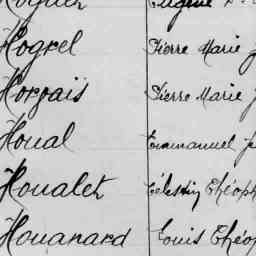 Hogrel Pierre Marie J
Horvais Pierre Marie J
Houal Emmanuel Je
Houalet Célestin Théoph
Houanard Louis Théop